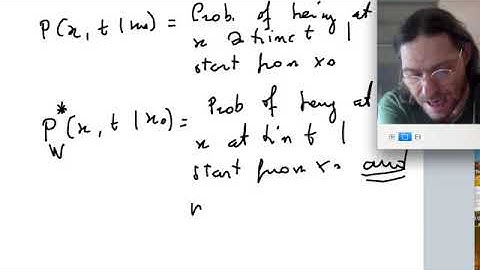 P(x, t | x₀) = Prob. of being at
x at time t |
start from x₀
P*_W(x, t | x₀) = Prob of being at
x at time t |
start from x₀ and